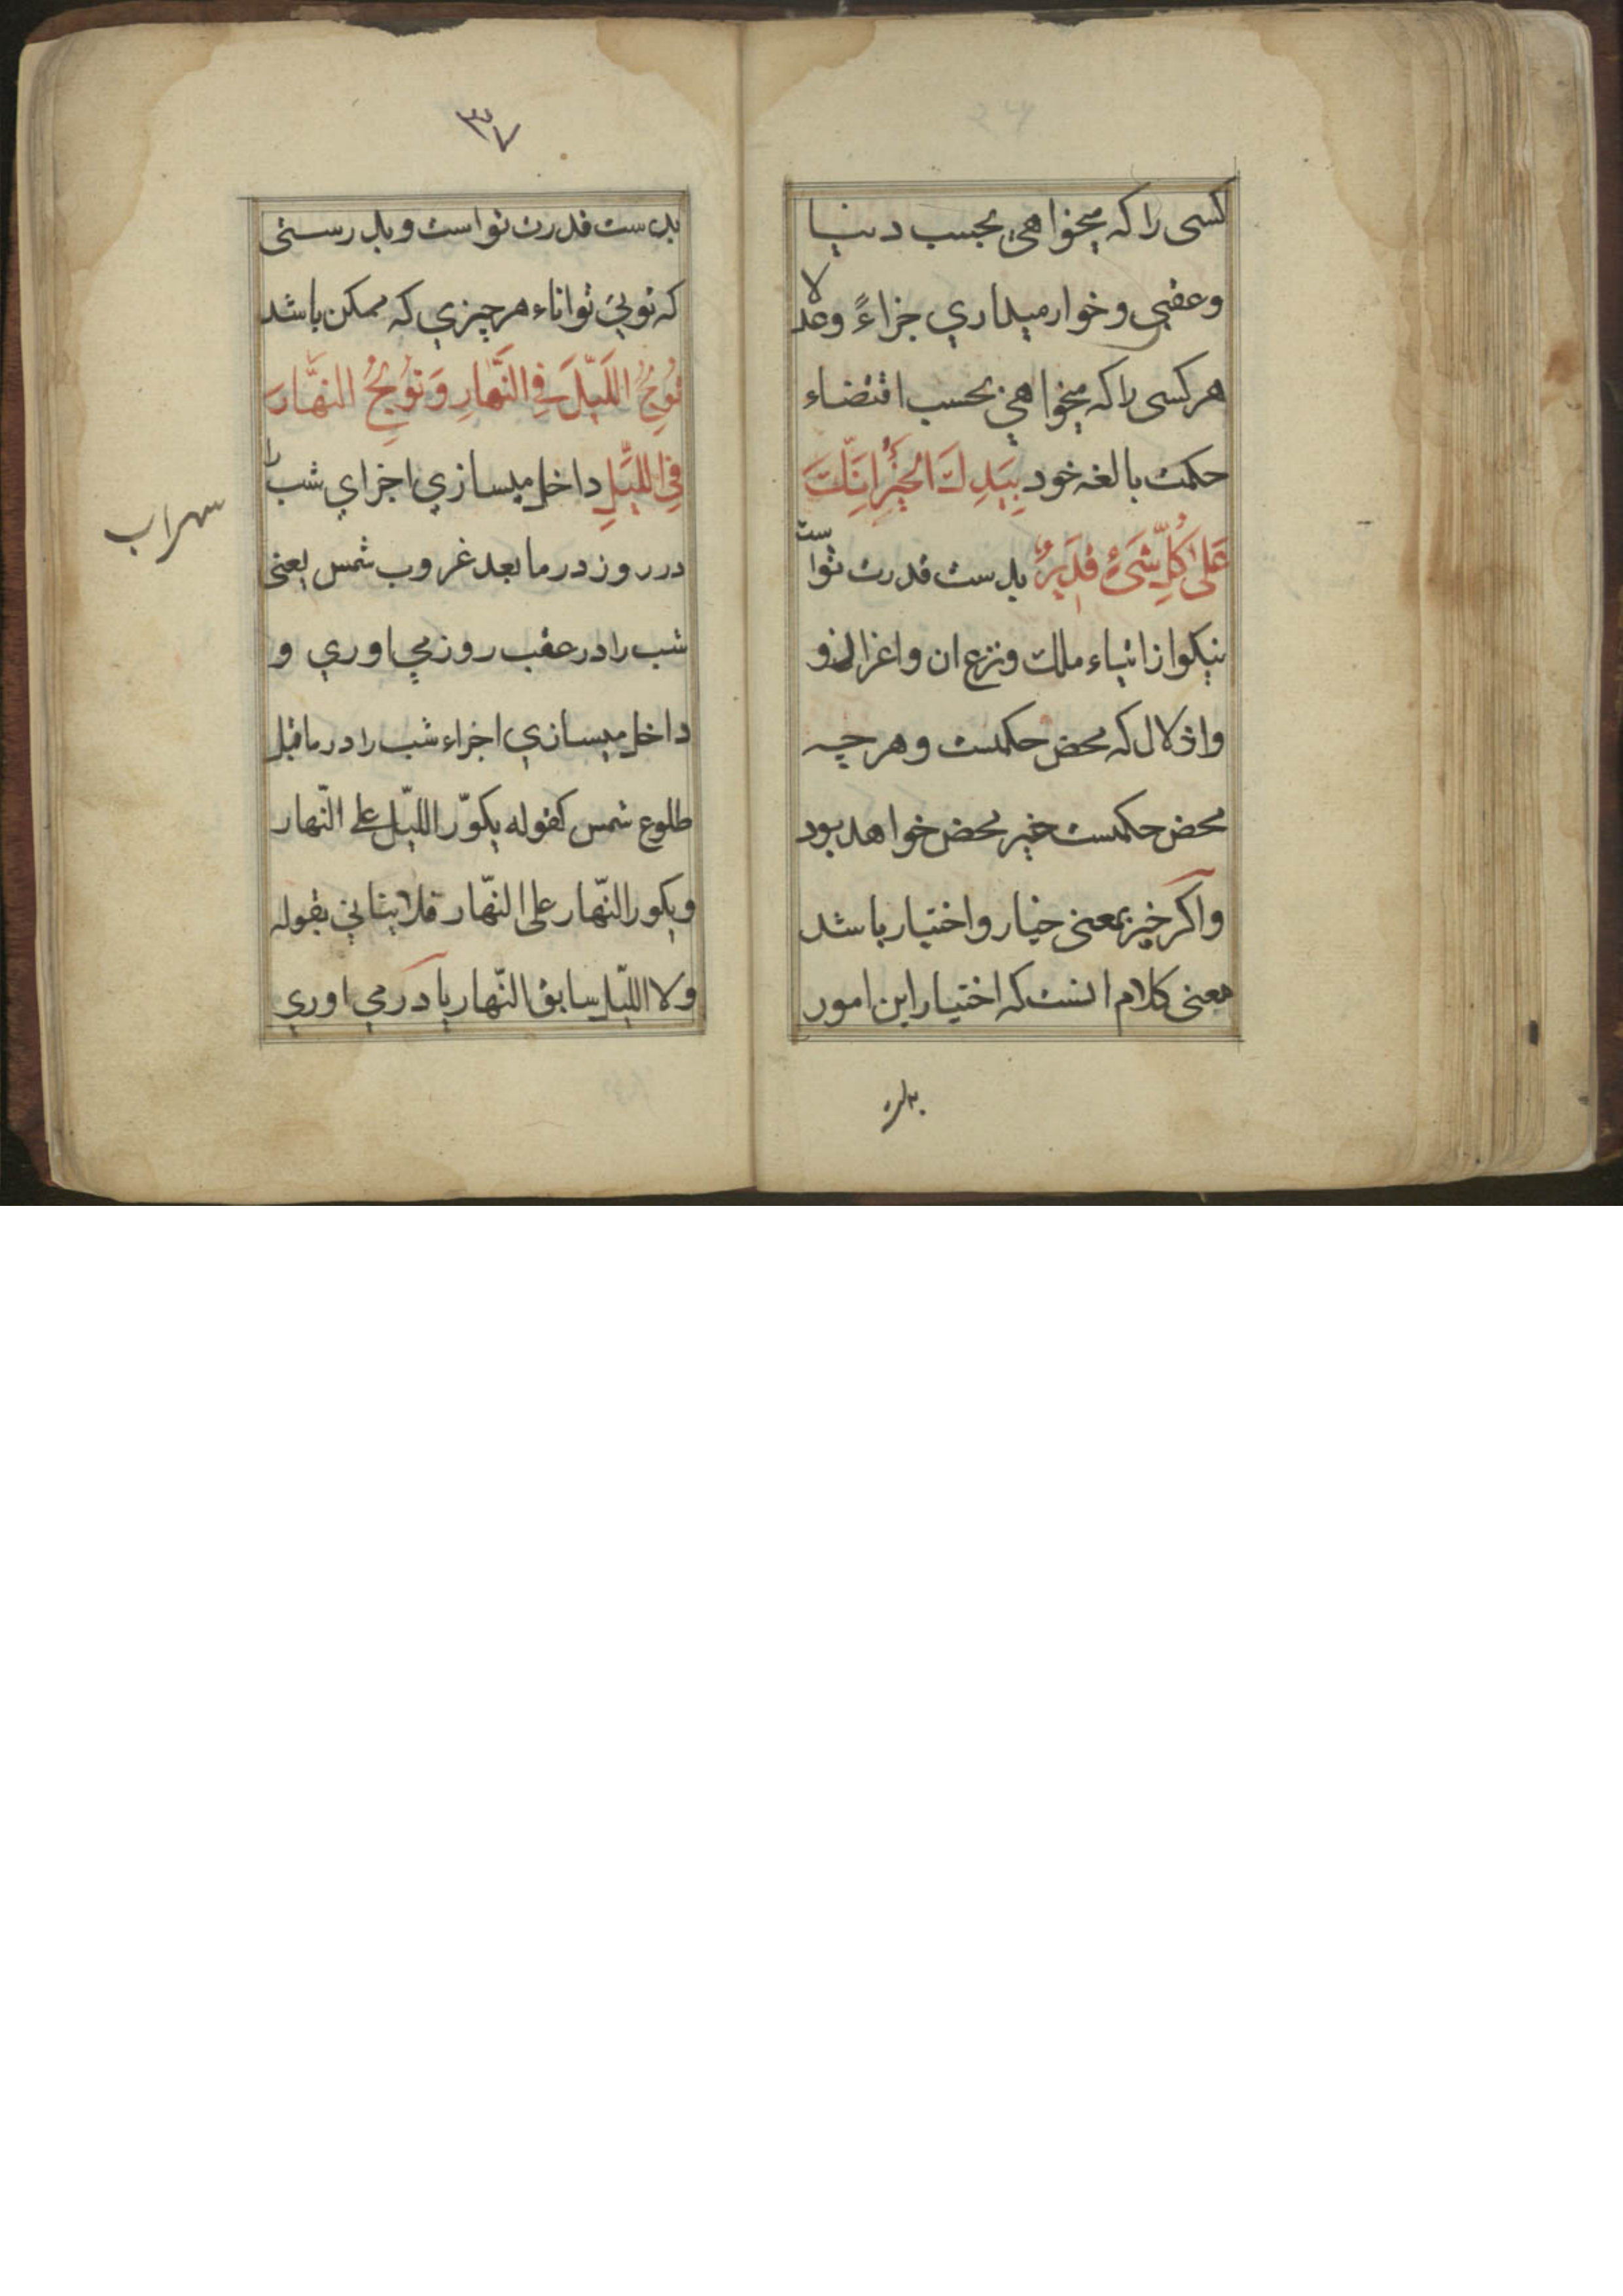 کسی را که میخواهی بحسب دنیا
وعقبی و خوار میداری جزاءً وعدلا
هر کسی را که میخواهی بحسب اقتضاء
حکمت بالغه خود بِیَدِكَ الخَیْرُ اِنَّكَ
عَلیٰ کُلِّ شَیْءٍ قَدِیرٌ بدست قدرت تواست
نیکو از ایتاء ملك ونزع ان واعزاز و
واذلال که محض حکمست وهرچه
محض حکمست خیر محض خواهد بود
واگر خیر بمعنی خیار واختیار باشد
معنی کلام انست که اختیار این امور
بدست
۳۷
بدست قدرت تواست وبدرستی
که تویی تواناء هرچیزی که ممکن باشد
تُوْلِجُ اللَّیْلَ فِی النَّهَارِ وَتُوْلِجُ النَّهَارَ
فِی اللَّیْلِ داخل میسازی اجزای شب را
در روز در مابعد غروب شمس یعنی
شب را در عقب روز می اوری و
داخل میسازی اجزاء شب را در ماقبل
طلوع شمس کقوله یکوّر اللّیل علی النّهار
ویکور النّهار علی النّهار فلا ینافی بقوله
ولا اللّیل سابق النّهار یا در می اوری
سهراب